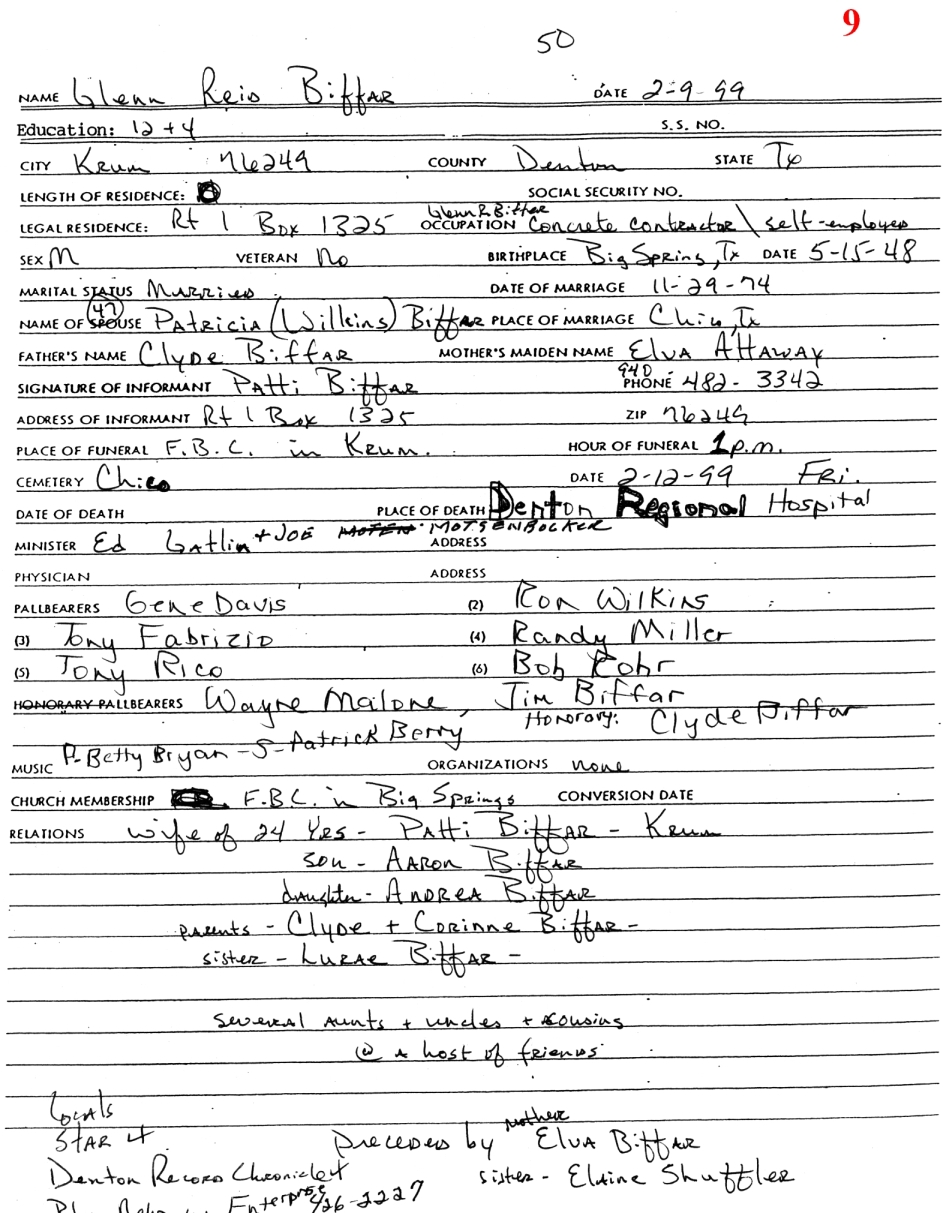 9
50
NAME Glenn Reid Biffar DATE 2-9-99
Education: 12 + 4 S.S. NO.
CITY Krum 76249 COUNTY Denton STATE Tx
LENGTH OF RESIDENCE: SOCIAL SECURITY NO.
Glenn R. Biffar
LEGAL RESIDENCE: Rt 1 Box 1325 OCCUPATION Concrete contractor \ self-employed
SEX M VETERAN No BIRTHPLACE Big Spring, Tx DATE 5-15-48
MARITAL STATUS Married DATE OF MARRIAGE 11-29-74
(47)
NAME OF SPOUSE Patricia (Wilkins) Biffar PLACE OF MARRIAGE Chico, Tx
FATHER'S NAME Clyde Biffar MOTHER'S MAIDEN NAME Elva Attaway
SIGNATURE OF INFORMANT Patti Biffar PHONE 940 482-3342
ADDRESS OF INFORMANT Rt 1 Box 1325 ZIP 76249
PLACE OF FUNERAL F.B.C. in Krum. HOUR OF FUNERAL 1 p.m.
CEMETERY Chico DATE 2-12-99 Fri.
DATE OF DEATH PLACE OF DEATH Denton Regional Hospital
MINISTER Ed Gatlin + JOE MOTSENBOCKER ADDRESS
PHYSICIAN ADDRESS
PALLBEARERS Gene Davis (2) Ron Wilkins
(3) Tony Fabrizio (4) Randy Miller
(5) Tony Rico (6) Bob Rohr
HONORARY PALLBEARERS Wayne Malone, Jim Biffar
Honorary: Clyde Biffar
MUSIC P-Betty Bryan - S-Patrick Berry ORGANIZATIONS none
CHURCH MEMBERSHIP F.B.C. in Big Springs CONVERSION DATE
RELATIONS wife of 24 yrs - Patti Biffar - Krum
son - Aaron Biffar
daughter - Andrea Biffar
parents - Clyde + Corinne Biffar -
sister - Lurae Biffar -
several aunts + uncles + cousins
@ a host of friends
Locals
Star 4 preceded by mother Elva Biffar
Denton Record Chronicle 4 sister - Elaine Shuffler
Enterprise 426-2227